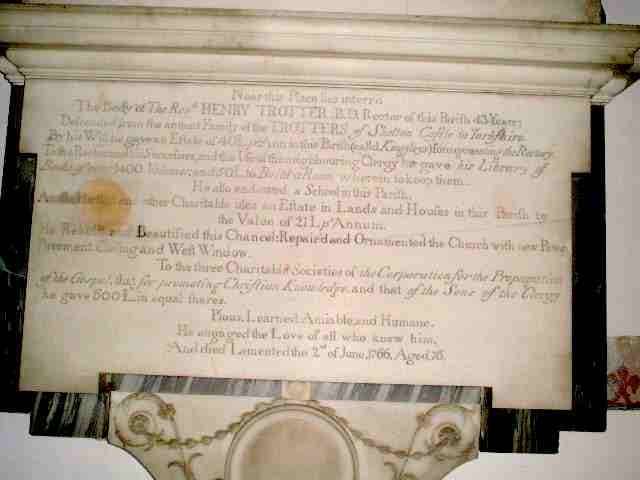 Near this Place lies interr'd
The Body of The Rev.d HENRY TROTTER B.D. Rector of this Parish 43 Years;
Descended from the antient Family of the TROTTERS of Skelton Castle in Yorkshire.
By his Will he gave an Estate of 40L. p.r Ann. in this Parish (call'd Kingsleys) for augmenting the Rectory.
To the Rector and his Successors, and the Use of the neighbouring Clergy he gave his Library of
Books of 1400 Volumes; and 50L. to Build a Room wherein to keep them.
He also endowed a School in this Parish,
And to other Charitable uses an Estate in Lands and Houses in this Parish to
the Value of 21L p.r Annum.
He and Beautified this Chancel: Repaired and Ornamented the Church with new Pews
Pavement Ceiling and West Window.
To the three Charitable Societies of the Corporation for the Propagation
of the Gospel, that for promoting Christian Knowledge, and that of the Sons of the Clergy
he gave 500L. in equal shares.
Pious, Learned, Amiable, and Humane,
He engaged the Love of all who knew him,
And died Lamented the 2.nd of June, 1766, Aged 76.